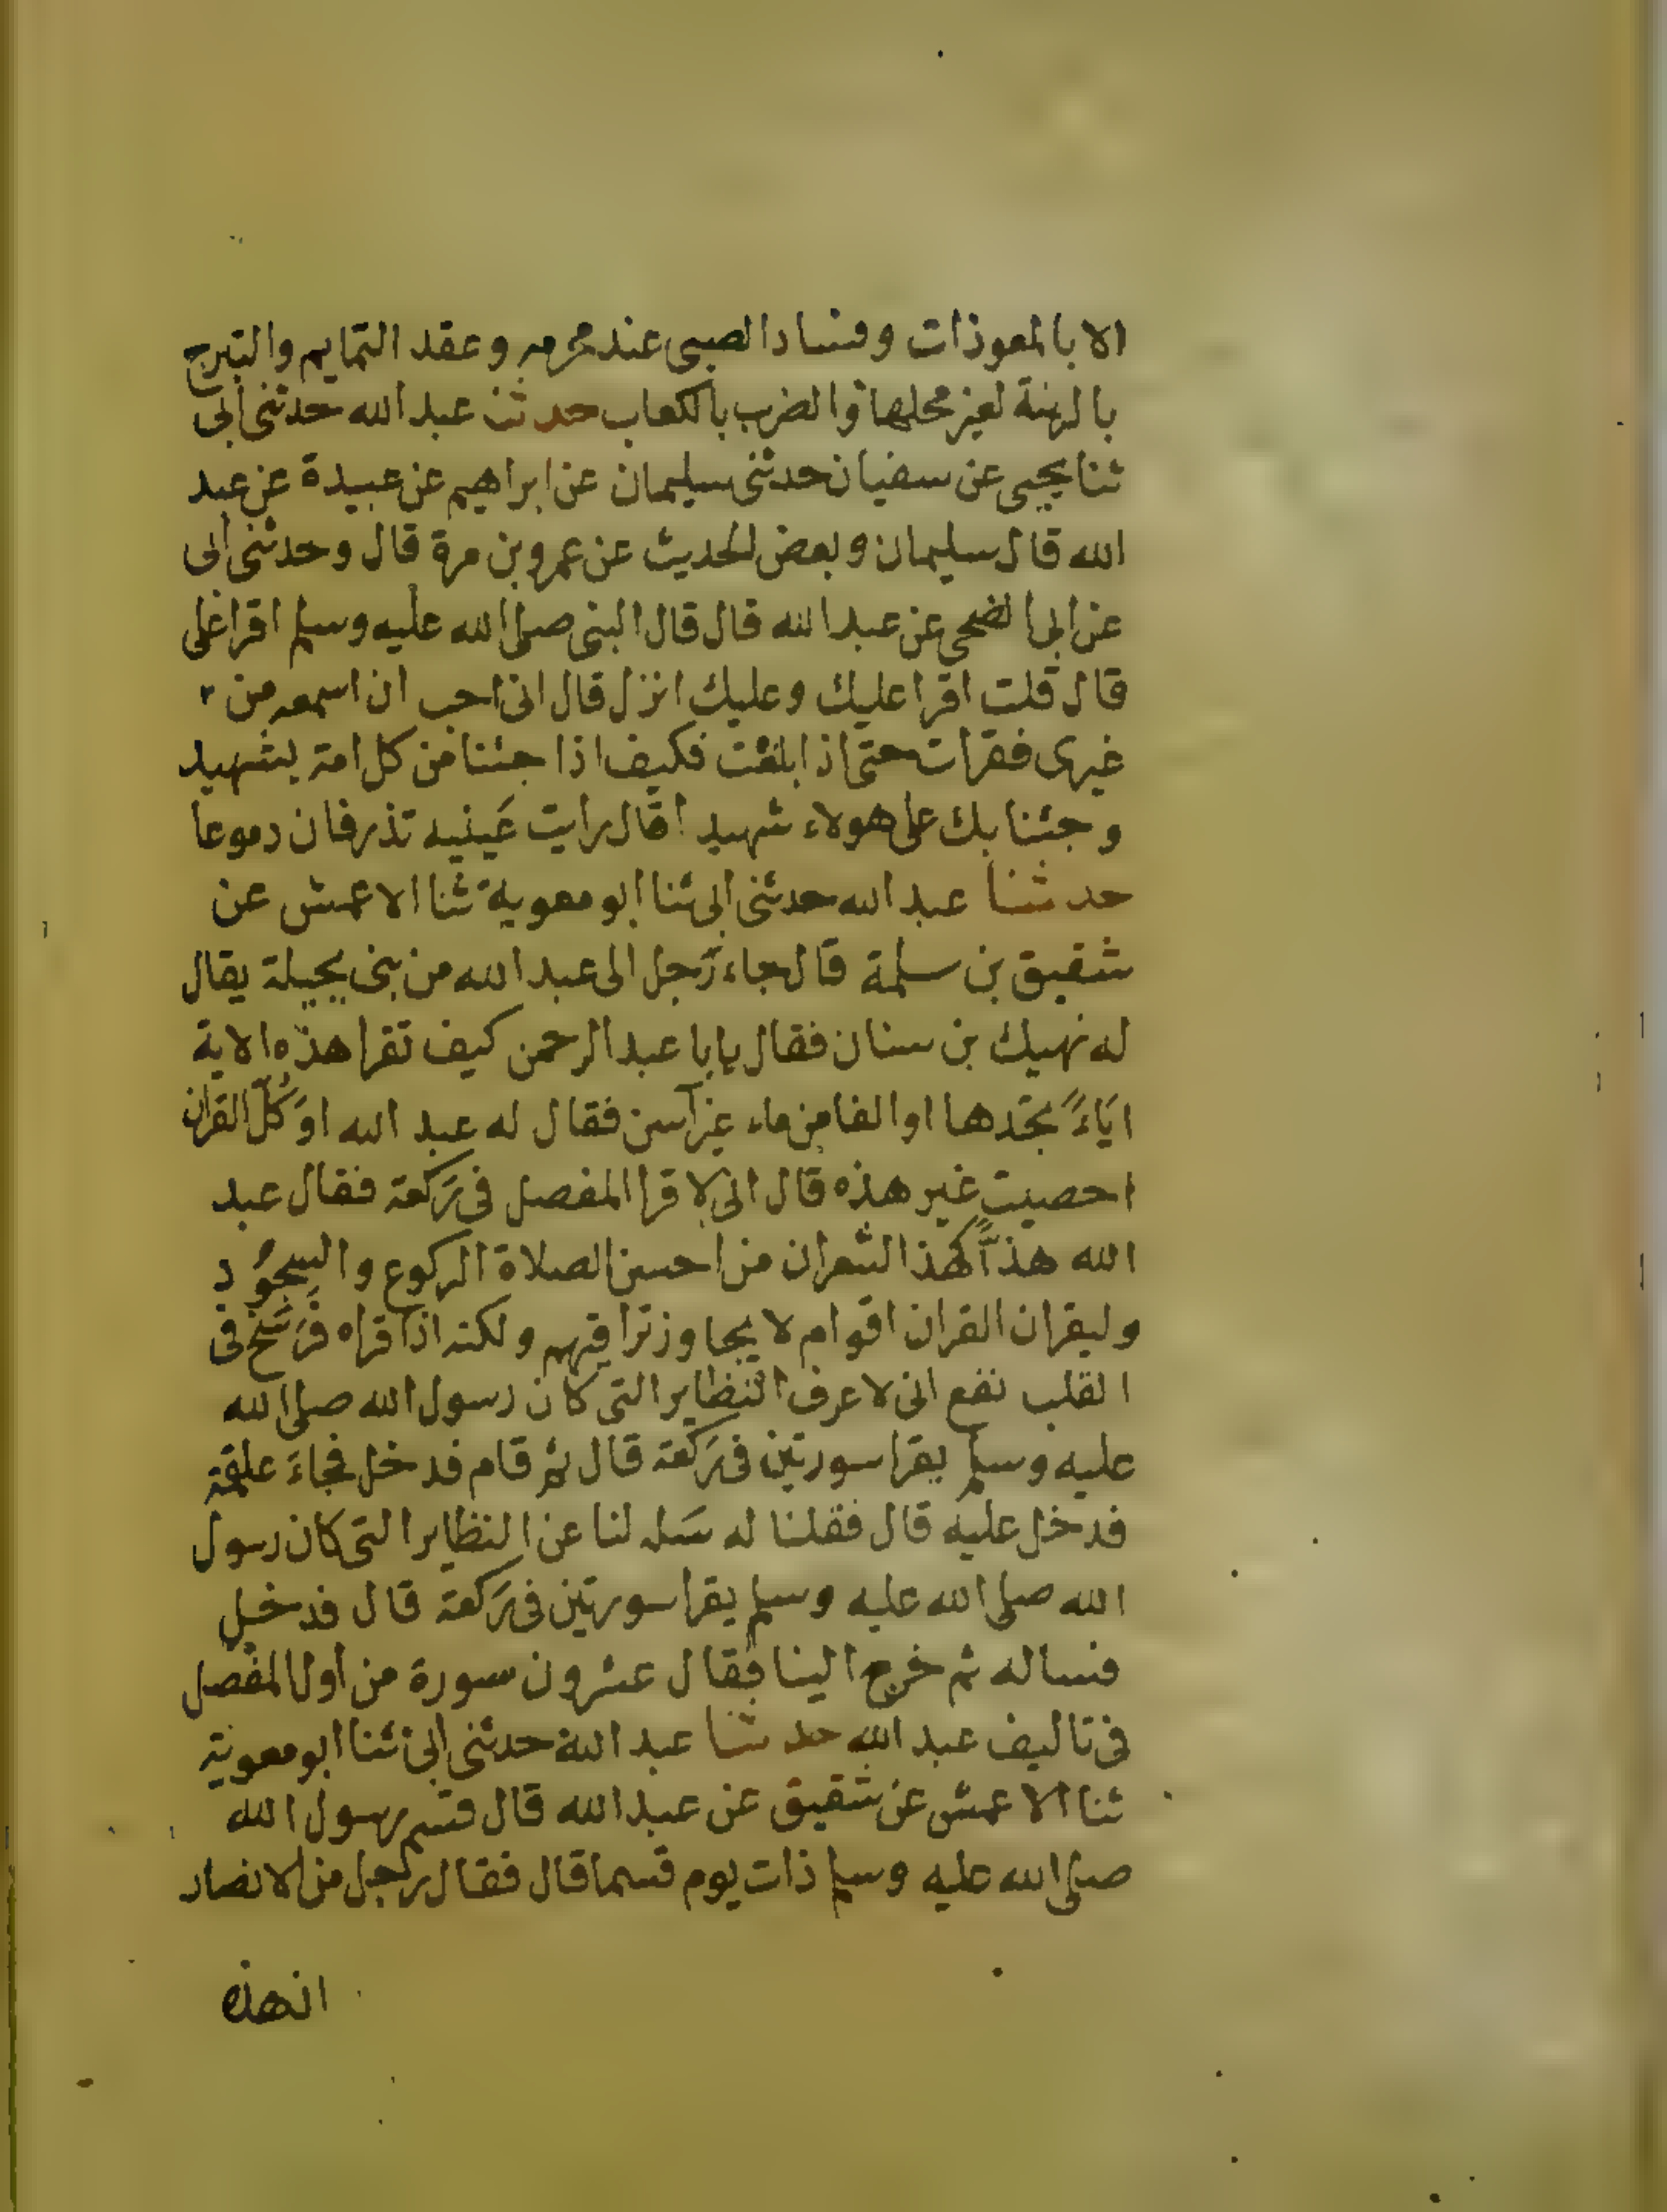 الا بالمعوذات وفساد الصبى عند محرمه وعقد التمايم والتبرج
بالزينة لغير محلها والضرب بالكعاب حدثنا عبد الله حدثنى ابى
ثنا يحيى عن سفيان حدثنى سليمان عن ابراهيم عن عبيدة عن عبد
الله قال سليمان وبعض الحديث عن عمرو بن مرة قال وحدثنى ابى
عن ابى الضحى عن عبد الله قال قال النبى صلى الله عليه وسلم اقرا على
قال قلت اقرا عليك وعليك انزل قال انى احب ان اسمعه من
غيرى فقرات حتى اذا بلغت فكيف اذا جئنا من كل امة بشهيد
وجئنا بك على هولاء شهيدا قال رايت عَينيه تذرفان دموعا
حدثنا عبد الله حدثنى ابى ثنا ابو معوية ثنا الاعمش عن
شقيق بن سلمة قال جاء رَجل الى عبد الله من بنى بجيلة يقال
له نهيك بن سنان فقال يابا عبد الرحمن كيف تقرا هذه الاية
ايَاءً تجَدها او الفا من ماء غير آسن فقال له عبد الله اوَكُلّ القران
احصيت غير هذه قال انى لاقرا المفصل فى رَكعة فقال عبد
الله هذاًّ كهذ الشعر ان من احسن الصلاة الركوع والسجُود
وليقران القران اقوام لا يجاوز تراقيهم ولكنه اذا قراه فرَسَخ فى
القلب نفع انى لاعرف النظاير التى كان رسول الله صلى الله
عليه وسلم يقرا سورتين فى رَكعة قال ثم قام فدخل فجاءَ علقمة
فدخل عليه قال فقلنا له سَله لنا عن النظاير التى كان رسول
الله صلى الله عليه وسلم يقرا سورتين فى رَكعة قال فدخل
فساله ثم خرج الينا فقال عشرون سورة من اول المفصل
فى تاليف عبد الله حدثنا عبد الله حدثنى ابى ثنا ابو معوية
ثنا الاعمش عن شقيق عن عبد الله قال قسم رسول الله
صلى الله عليه وسلم ذات يوم قسما قال فقال رجل من الانصار
ان هذه